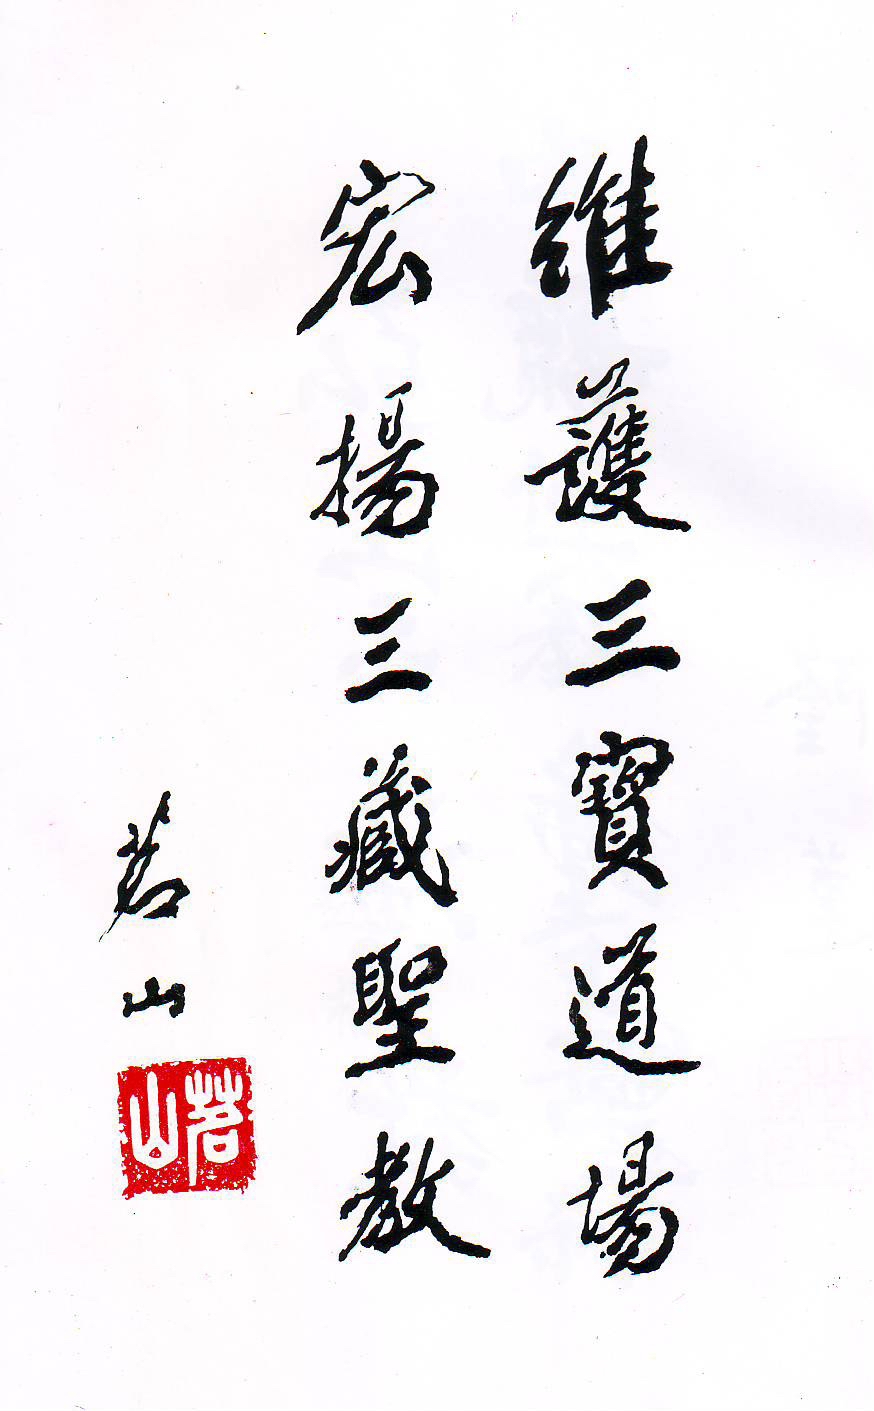 維護三寶道場
宏揚三藏聖教
茗山
茗山